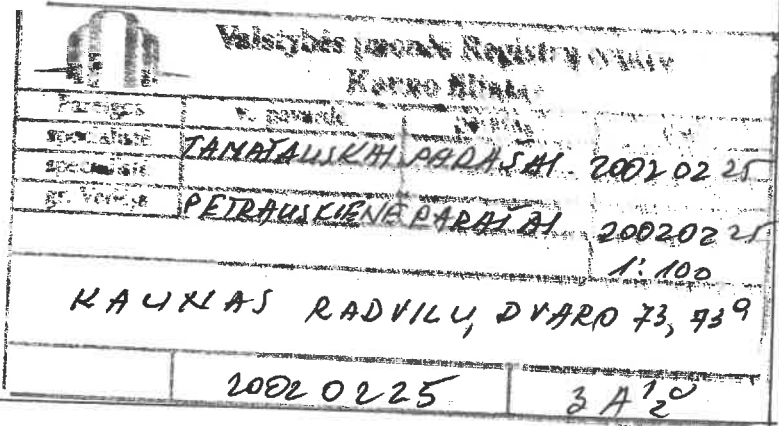 Valstybės įmonės Registrų centro
Kauno filialas
Pareigos v. pavardė
specialistė TAMATAUSKAI PARAŠAI 2002 02 25
specialistė
gr. vedėja PETRAUSKIENĖ PARAŠAI 2002 02 25
1:100
KAUNAS RADVILŲ DVARO 73, 73a
2002 02 25